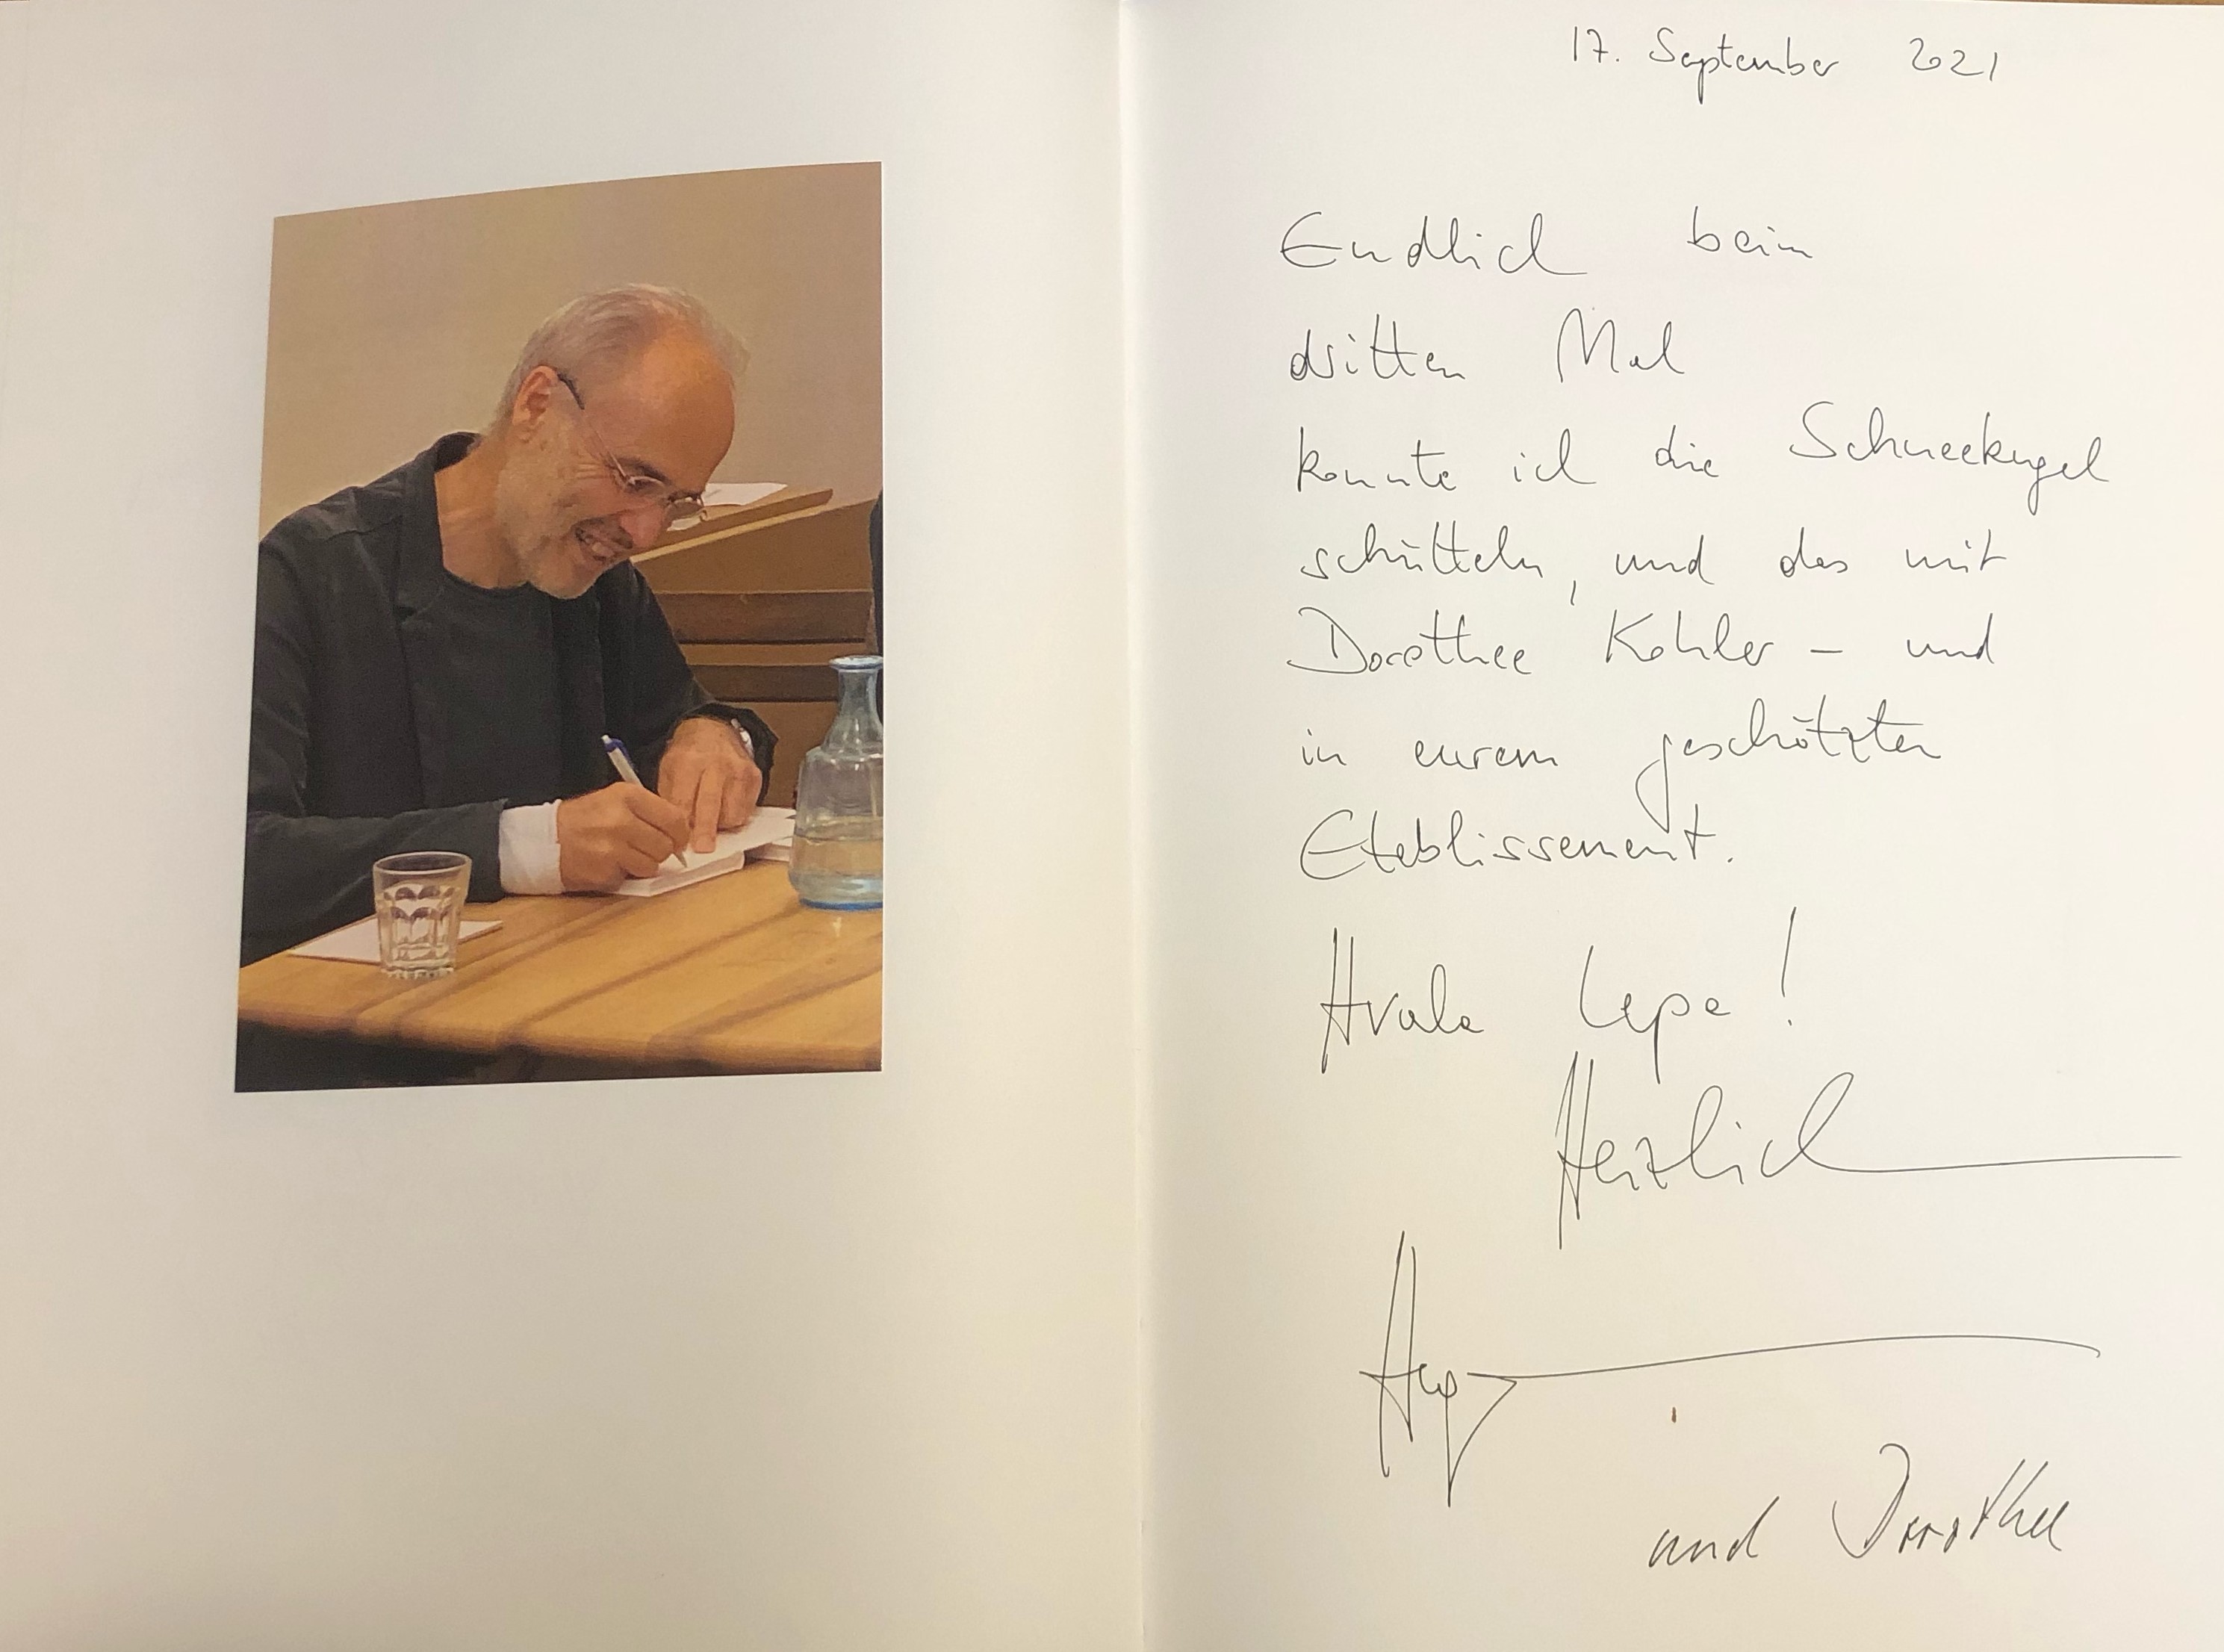 17. September 2021
Endlich beim
dritten Mal
konnte ich die Schneekugel
schütteln, und das mit
Dorothee Kohler – und
in eurem geschätzten
Etablissement.
Hvala lepa!
Herzlich
und Dorothee